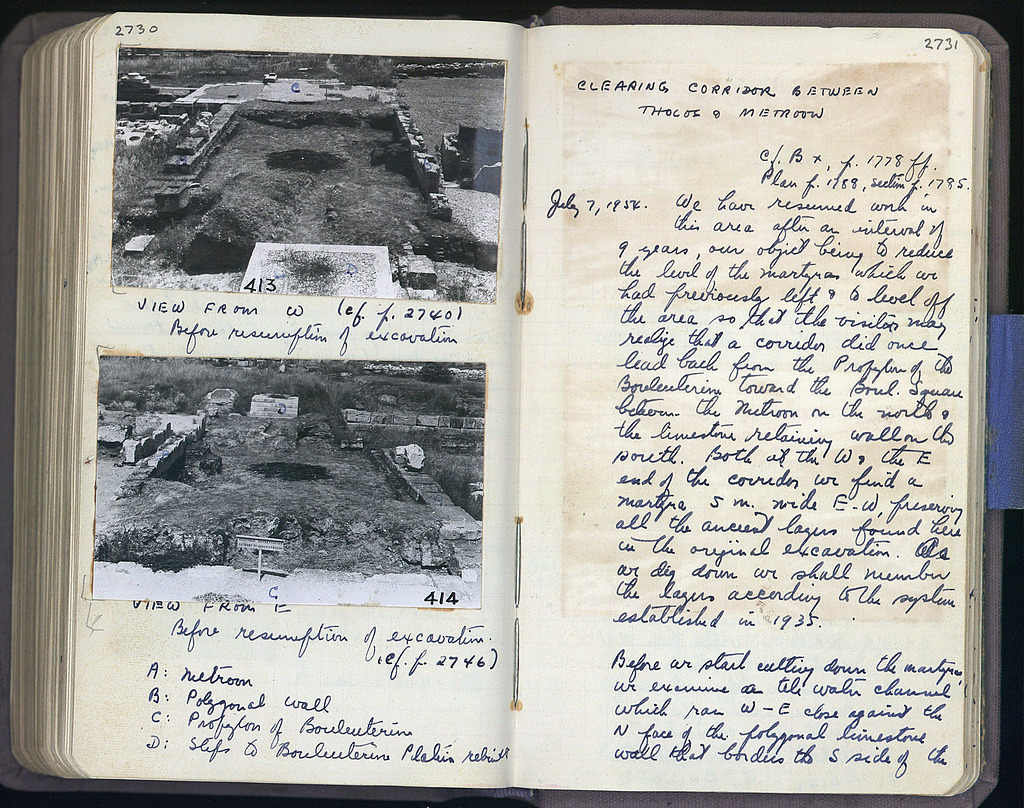 2730
413
VIEW FROM W (cf. p. 2740)
Before resumption of excavation
C
D
414
VIEW FROM E
Before resumption of excavation.
(cf. p. 2746)
A: Metroon
B: Polygonal wall
C: Propylon of Bouleuterion
D: Steps to Bouleuterion Plateia rebuilt
2731
CLEARING CORRIDOR BETWEEN
THOLOS & METROON
cf. B x, p. 1778 ff.
Plan p. 1788, section p. 1795.
July 7, 1954. We have resumed work in
this area after an interval of
9 years, our object being to reduce
the level of the martyras which we
had previously left & to level off
the area so that the visitor may
realize that a corridor did once
lead back from the Propylon of the
Bouleuterion toward the Boul. Square
between the Metroon on the north &
the limestone retaining wall on the
south. Both at the W & the E
end of the corridor we find a
martyra 5 m. wide E-W, preserving
all the ancient layers found here
in the original excavation. As
we dig down we shall number
the layers according to the system
established in 1935.
Before we start cutting down the martyras,
we examine a tile water channel
which ran W-E close against the
N face of the polygonal limestone
wall that borders the S side of the